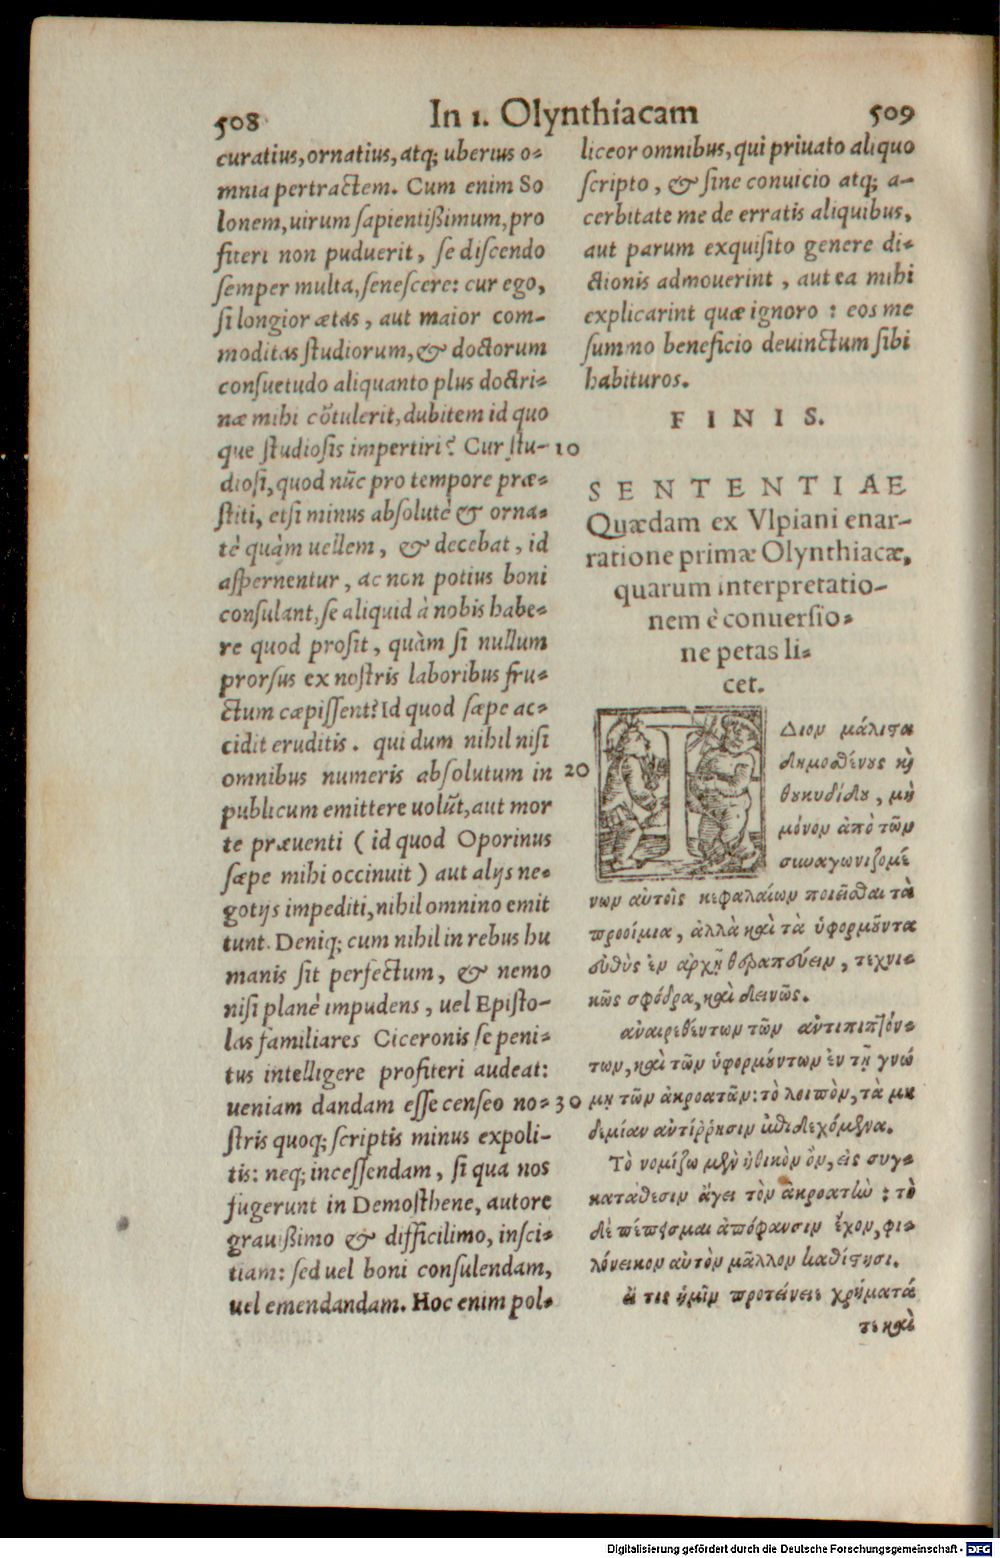 508 In 1. Olynthiacam 509
curatius, ornatius, atq; uberius o-
mnia pertractem. Cum enim So
lonem, uirum sapientißimum, pro
fiteri non puduerit, se discendo
semper multa, senescere: cur ego,
si longior ætas, aut maior com-
moditas studiorum, & doctorum
consuetudo aliquanto plus doctri-
næ mihi cōtulerit, dubitem id quo
que studiosis impertiri? Cur stu-
diosi, quod nūc pro tempore præ-
stiti, etsi minus absolutè & orna-
tè quàm uellem, & decebat, id
aspernentur, ac non potius boni
consulant, se aliquid à nobis habe-
re quod prosit, quàm si nullum
prorsus ex nostris laboribus fru-
ctum cæpissent? Id quod sæpe ac-
cidit eruditis. qui dum nihil nisi
omnibus numeris absolutum in
publicum emittere uolūt, aut mor
te præuenti ( id quod Oporinus
sæpe mihi occinuit ) aut alijs ne-
gotijs impediti, nihil omnino emit
tunt. Deniq; cum nihil in rebus hu
manis sit perfectum, & nemo
nisi planè impudens, uel Episto-
las familiares Ciceronis se peni-
tus intelligere profiteri audeat:
ueniam dandam esse censeo no-
stris quoq; scriptis minus expoli-
tis: neq; incessendam, si qua nos
fugerunt in Demosthene, autore
grauißimo & difficilimo, insci-
tiam: sed uel boni consulendam,
uel emendandam. Hoc enim pol-
10
20
30
liceor omnibus, qui priuato aliquo
scripto, & sine conuicio atq; a-
cerbitate me de erratis aliquibus,
aut parum exquisito genere di-
ctionis admouerint, aut ea mihi
explicarint quæ ignoro : eos me
summo beneficio deuinctum sibi
habituros.
FINIS.
SENTENTIAE
Quædam ex Vlpiani enar-
ratione primæ Olynthiacæ,
quarum interpretatio-
nem è conuersio-
ne petas li-
cet.
ΙΔιον μάλιϛα
δημοσθένους κỳ
θουκυδίδου, μὴ
μόνον ἀπὸ τῶν
συναγωνιζομέ
νων αὐτοῖς κεφαλαίων ποιεῖσθαι τὰ
προοίμια, ἀλλὰ καὶ τὰ ὑφορμοῦντα
εὐθὺς ἐν ἀρχῇ θεραπεύειν, τεχνι-
κῶς σφόδρα, καὶ δεινῶς.
ἀναιρεθέντων τῶν ἀντιπιπτόν-
των, καὶ τῶν ὑφορμούντων ἐν τῇ γνώ
μῃ τῶν ἀκροατῶν: τὸ λοιπὸν, τὰ μη
δεμίαν ἀντίῤῥησιν ἐπιδεχόμενα.
Τὸ νομίζω μὲν ἠθικὸν ὂν, εἰς συγ-
κατάθεσιν ἄγει τὸν ἀκροατὴν : τὸ
δὲ πέπεισμαι ἀπόφανσιν ἔχον, φι-
λόνεικον αὐτὸν μᾶλλον καθίϛησι.
εἴ τις ἡμῖν προτείνειε χρήματά
τε καὶ
Digitalisierung gefördert durch die Deutsche Forschungsgemeinschaft - DFG